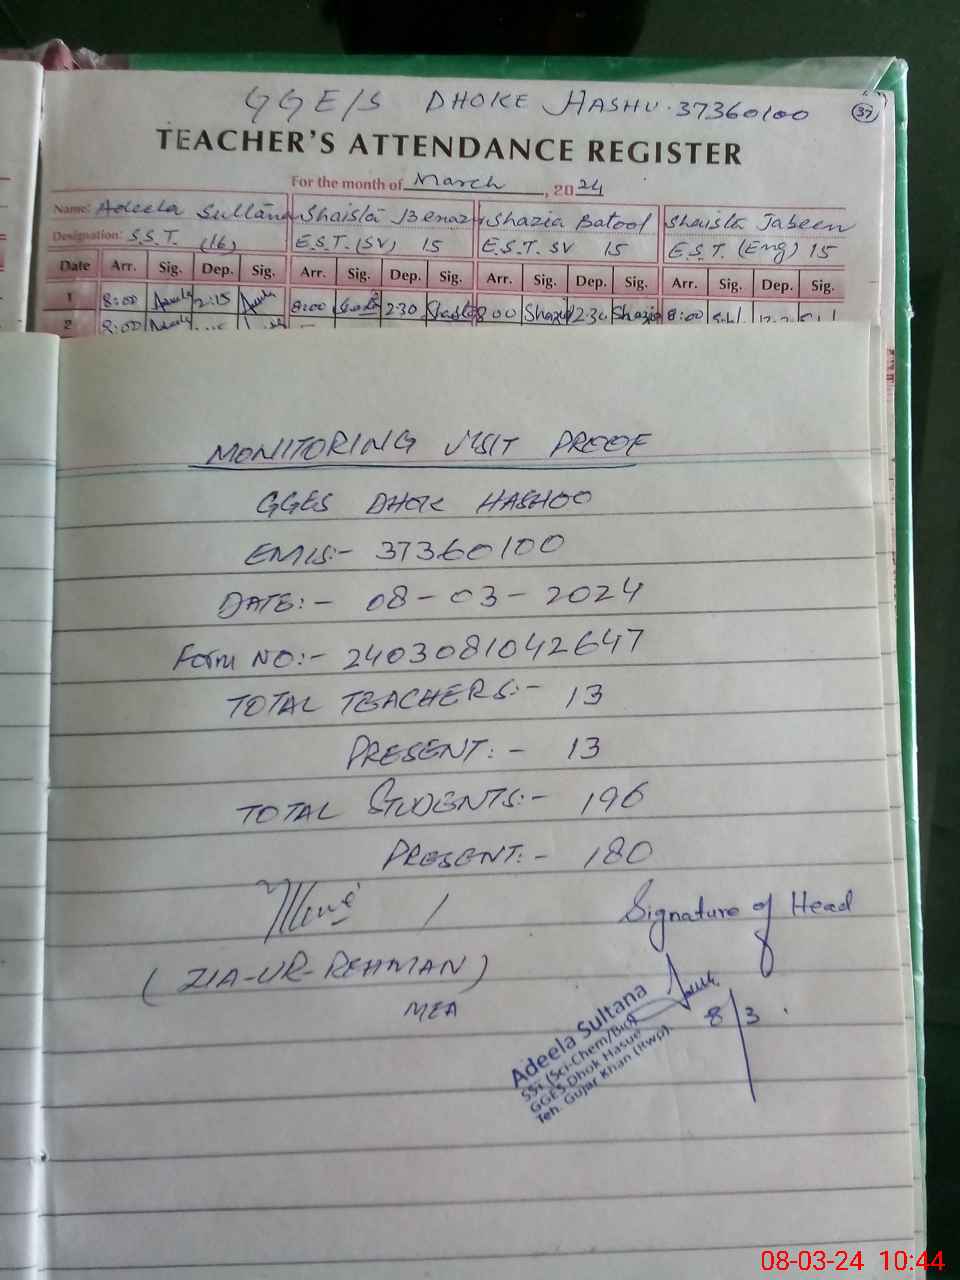 GGE/S DHOKE HASHU. 37360100 37
TEACHER'S ATTENDANCE REGISTER
For the month of March, 2024
Name: Adeela Sultana Shaista Benazir Shazia Batool Shaista Jabeen
Designation: S.S.T. (16) E.S.T. (SV) 15 E.S.T. SV 15 E.S.T. (Eng) 15
Date Arr. Sig. Dep. Sig. Arr. Sig. Dep. Sig. Arr. Sig. Dep. Sig. Arr. Sig. Dep. Sig.
1 8:00 Adeela 2:15 8:00 2:30 Shaista 8:00 Shazia 12:30 Shazia 8:00
2 8:00
MONITORING VISIT PROOF
GGES DHOK HASHOO
EMIS:- 37360100
DATE:- 08-03-2024
Form NO:- 2403081042647
TOTAL TEACHERS:- 13
PRESENT:- 13
TOTAL STUDENTS:- 196
PRESENT:- 180
Signature of Head
(ZIA-UR-REHMAN)
MEA
8/3.
Adeela Sultana
SSt (Sci-Chem/Bio)
GGES Dhok Hasue
Teh. Gujar Khan (Rwp).
08-03-24 10:44